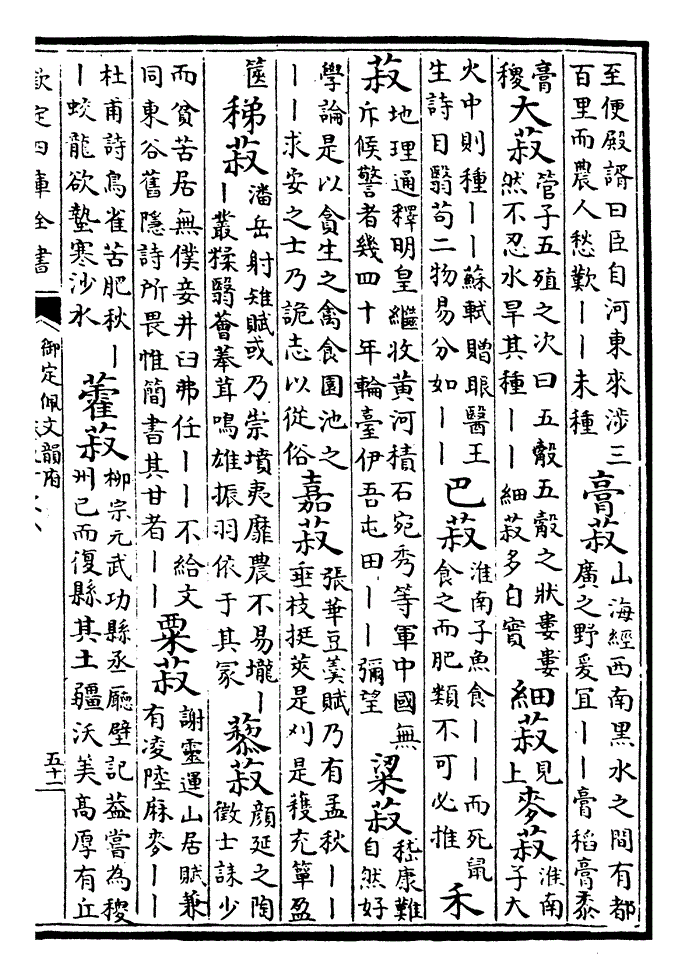 至便殿諝曰臣自河東來涉三
百里而農人愁歎丨丨未種
膏菽
山海經西南黑水之間有都
廣之野爰宜丨丨膏稻膏黍
膏稷
大菽
管子五殖之次曰五㲄五㲄之狀婁婁
然不忍水旱其種丨丨細菽多白實
細菽
見上
麥菽
淮南子大
火中則種丨丨蘇軾贈眼醫王
生詩曰翳苟二物易分如丨丨
巴菽
淮南子魚食丨丨而死鼠
食之而肥類不可必推
禾
菽
地理通釋明皇繼收黄河積石宛秀等軍中國無
斥候警者幾四十年輪臺伊吾屯田丨丨彌望
粱菽
嵇康難
自然好
學論是以貪生之禽食園池之
丨丨求安之士乃詭志以從俗
嘉菽
張華豆羮賦乃有孟秋丨丨
垂枝挺莢是刈是穫充簞盈
篋
稊菽
潘岳射雉賦或乃崇墳夷靡農不易壠丨
丨叢糅翳薈菶茸鳴雄振羽依于其冢
藜菽
顔延之陶
徵士誄少
而貧苦居無僕妾井臼弗任丨丨不給文
同東谷舊隱詩所畏惟簡書其甘者丨丨
粟菽
謝靈運山居賦兼
有凌陸麻麥丨丨
杜甫詩鳥雀苦肥秋丨
丨蛟龍欲蟄寒沙水
藿菽
柳宗元武功縣丞廳壁記葢嘗為稷
州已而復縣其土疆沃美高厚有丘
欽定四庫全書
御定佩文韻府
五十二